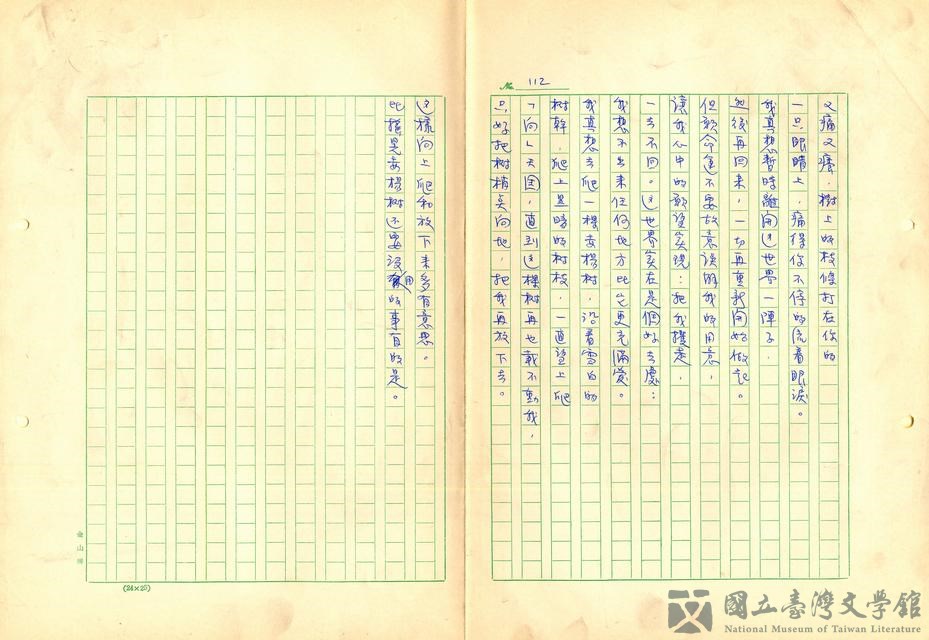 No. 112
又痛又癢，樹上的枝條打在你的
一只眼睛上，痛得你不停的流着眼淚。
我真想暫時離開這世界一陣子，
然後再回來，一切再重新開始做起。
但願命運不要故意誤解我的用意，
讓我心中的願望實現：把我攫走，
一去不回。這世界實在是個好去處：
我想不出來任何地方比它更充滿愛。
我真想去爬一棵委楊树，沿着雪白的
树幹，爬上黑暗的树枝，一直望上爬
「向」天国，直到這棵树再也载不動我，
只好把树梢点向地，把我再放下去。
這樣向上爬和放下来多有意思。
比搖晃委楊树还要没用的事有的是。
金山牌
(24×25)
國立臺灣文學館
National Museum of Taiwan Literature